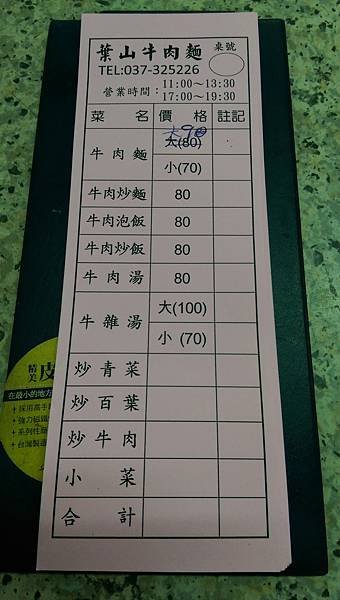 葉山牛肉麵 桌號
TEL:037-325226
營業時間：11:00～13:30
17:00～19:30
菜名 價格 註記
大90
牛肉麵 大(80)
小(70)
牛肉炒麵 80
牛肉泡飯 80
牛肉炒飯 80
牛肉湯 80
牛雜湯 大(100)
小 (70)
炒青菜
炒百葉
炒牛肉
小菜
合計
精美 皮
在最小的地方
+ 採用高手
+ 強力磁鐵
+ 系列性
+ 台灣製造